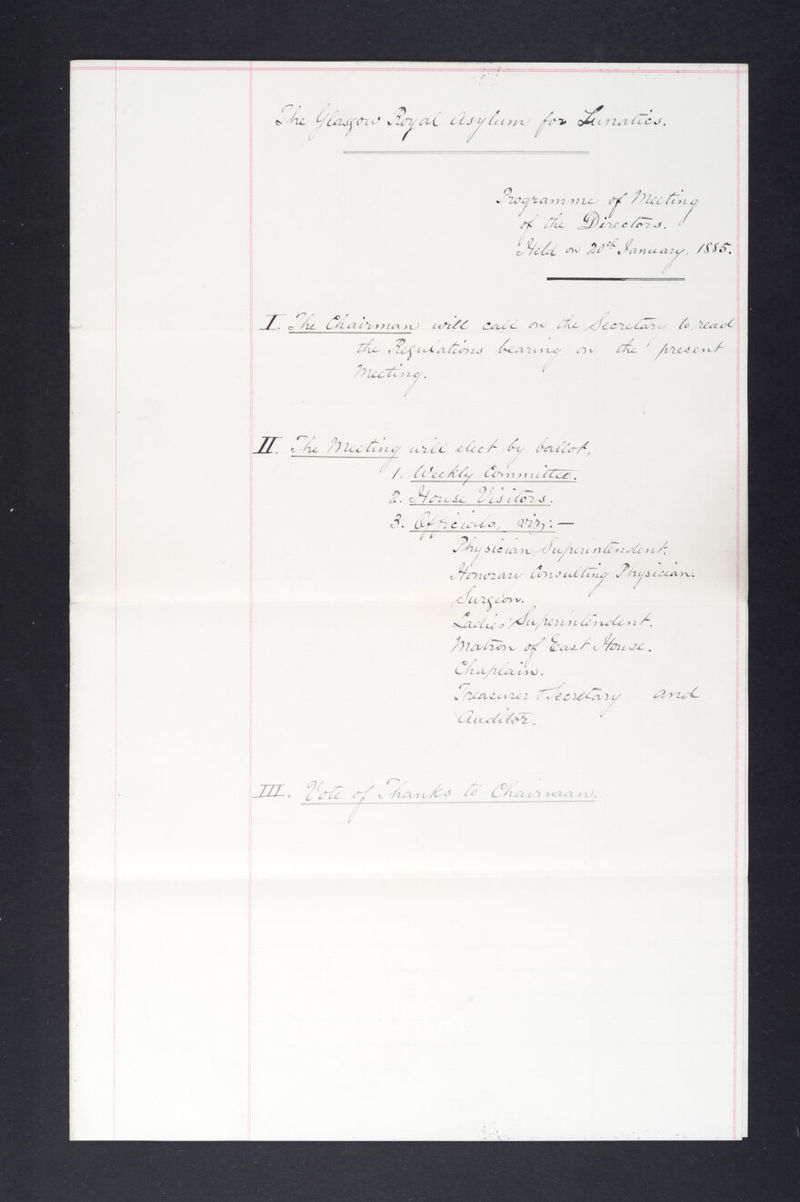 The Glasgow Royal Asylum for Lunatics.
Programme of Meeting
of the Directors.
Held on 20th January, 1885.
I. The Chairman will call on the Secretary to read
the Regulations bearing on the present
Meeting.
II. The Meeting will elect by ballot,
1. Weekly Committee.
2. House Visitors.
3. Officials, viz:—
Physician Superintendent.
Honorary Consulting Physician.
Surgeon.
Ladies' Superintendent.
Matron of East House.
Chaplain.
Treasurer & Secretary and
Auditor.
III. Vote of Thanks to Chairman.